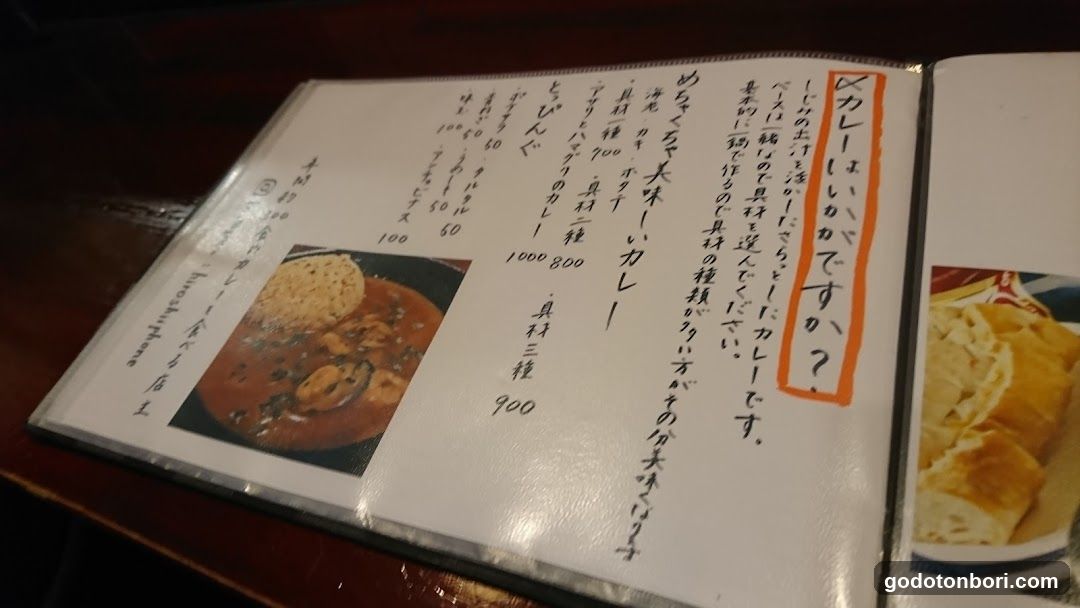 〆カレーはいかがですか？
しじみの出汁を活かしたさらっとしたカレーです。
ベースは一緒なので具材を選んでください。
基本的に一鍋で作るので具材の種類が多い方がその分美味くなります
めちゃくちゃ美味しいカレー
海老・カキ・ホタテ
・具材一種 700 ・具材二種 800 ・具材三種 900
・アサリとハマグリのカレー 1000
とっぴんぐ
・タルタル 50
50
・味玉 100 ・アンチョビナス 100
年間約 300食カレー食べる店主
hiroshiphone
godotonbori.com